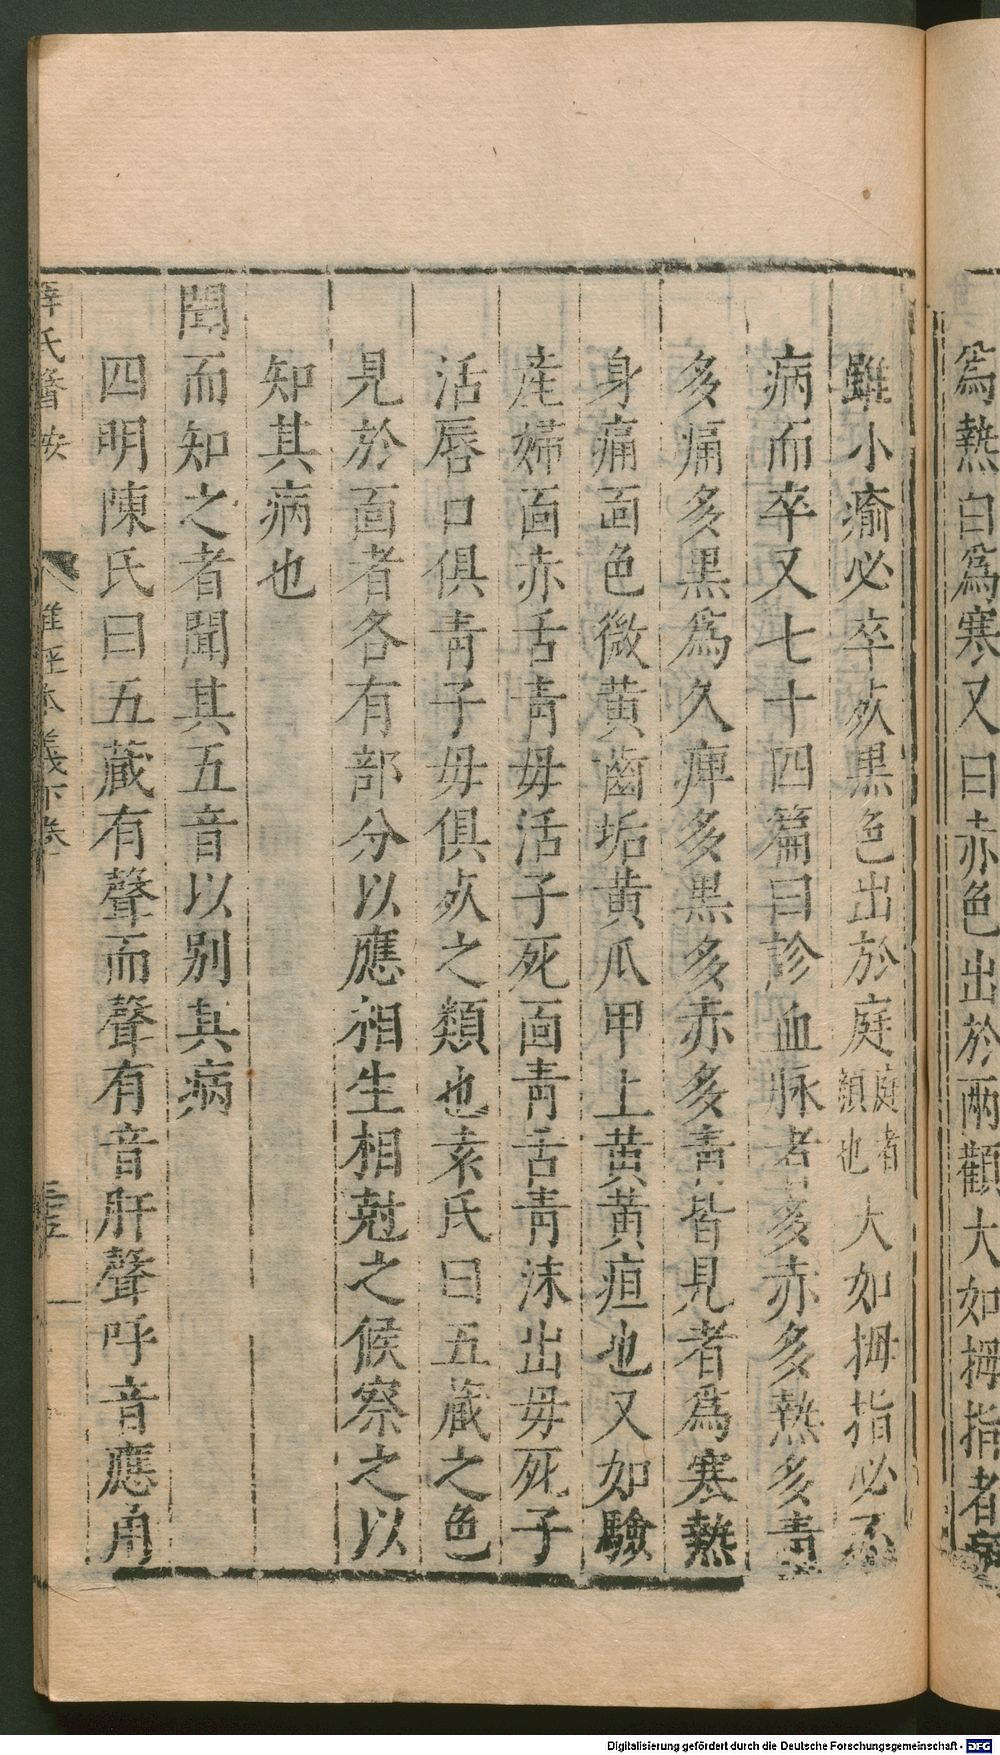 爲熱白爲寒又曰赤色出於兩顴大如拇指者病
雖小瘉必卒死黒色出於庭庭者顔也大如拇指必不
病而卒又七十四篇曰診血脉者多赤多熱多青
多痛多黒爲久痺多黒多赤多青皆見者爲寒熱
身痛面色微黄齒垢黄爪甲上黄黄疸也又如驗
産婦面赤舌青母活子死面青舌青沫出母死子
活唇口俱青子母俱死之類也袁氏曰五蔵之色
見於面者各有部分以應相生相尅之候察之以
知其病也
聞而知之者聞其五音以别其病
四明陳氏曰五蔵有聲而聲有音肝聲呼音應角
薛氏醫按 難經本義下卷
Digitalisierung gefördert durch die Deutsche Forschungsgemeinschaft - DFG